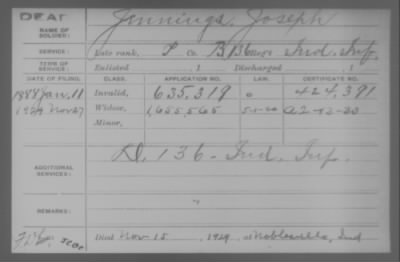 DEAF
Jennings, Joseph
NAME OF
SOLDIER:
SERVICE:
Late rank, P Co. B, 136 Reg't Ind. Inf.
TERM OF
SERVICE:
Enlisted , 1 Discharged , 1
DATE OF FILING. CLASS. APPLICATION NO. LAW. CERTIFICATE NO.
1888 Jan. 11 Invalid, 635,319 0 424,391
1929 Nov 27 Widow, 1,655,565 5-1-20 A2-12-30
Minor,
D. 136 - Ind. Inf.
ADDITIONAL
SERVICES:
REMARKS:
Died Nov. 15, 1929, at Noblesville, Ind